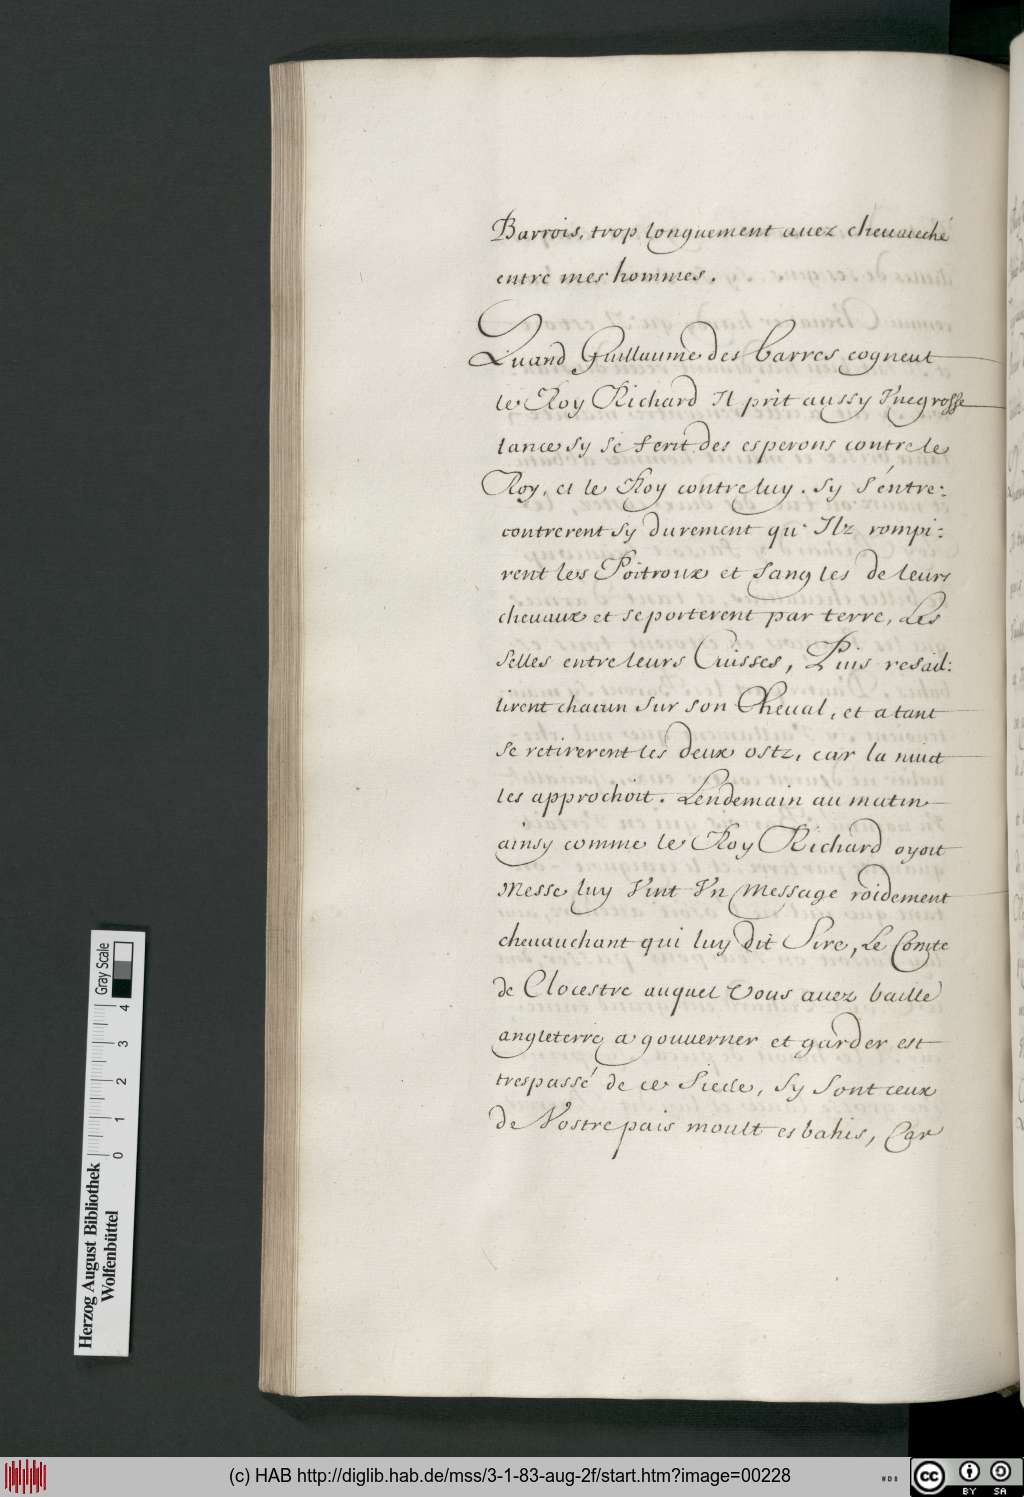 Barrois, trop longuement auez cheuauché
entre mes hommes.
Quand Guillaume des barres cogneut
le Roy Richard Il prit aussy Vne grosse
lance sy se ferit des esperons contre le
Roy, et le Roy contre luy. Sy s'éntre:
contrerent sy durement qu' Ilz rompi:
rent les Poitroux et sangles de leurs
cheuaux et se porterent par terre, Les
selles entre leurs Cuisses, Puis resail:
lirent chacun sur son Cheual, et atant
se retirerent les deux ostz, car la nuict
les approchoit. Lendemain au matin
ainsy comme le Roy Richard oyoit
Messe luy Vint Vn Message roidement
cheuauchant qui luy dit Sire, Le Comte
de Clocestre auquel Vous auez baillé
angleterre a gouuerner et garder est
trespassé de ce Siecle, Sy sont ceux
de Nostre pais moult esbahis, Car
Herzog August Bibliothek
Wolfenbüttel
Gray Scale
0 1 2 3 4
(c) HAB http://diglib.hab.de/mss/3-1-83-aug-2f/start.htm?image=00228
WDB
cc BY SA